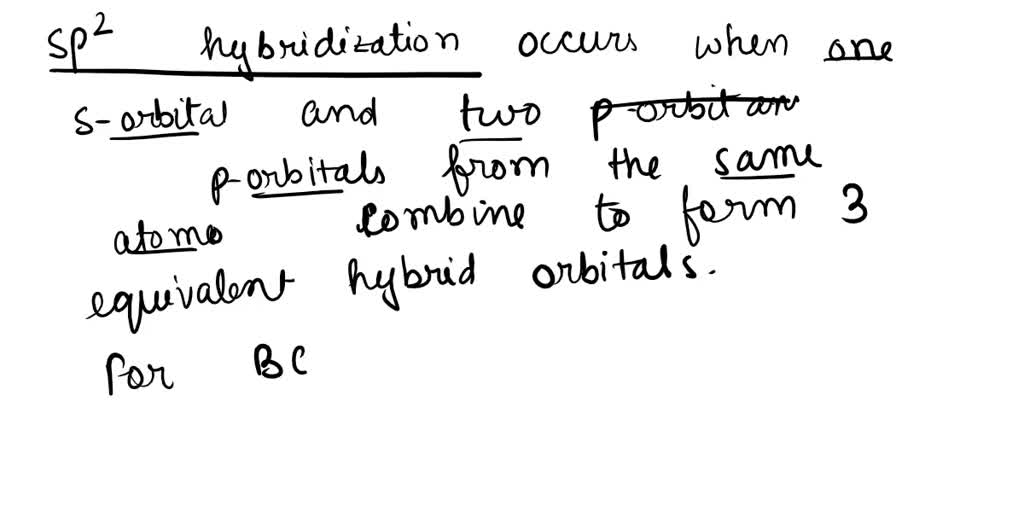 sp² hybridization occurs when one
s-orbital and two p-orbitan
p-orbitals from the same
atomo combine to form 3
equivalent hybrid orbitals.
For BC